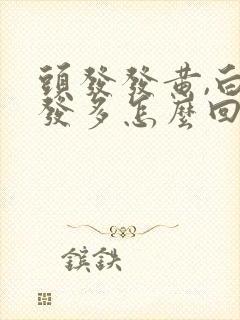 頭發發黄,白
發多怎麼回
鎵鉄